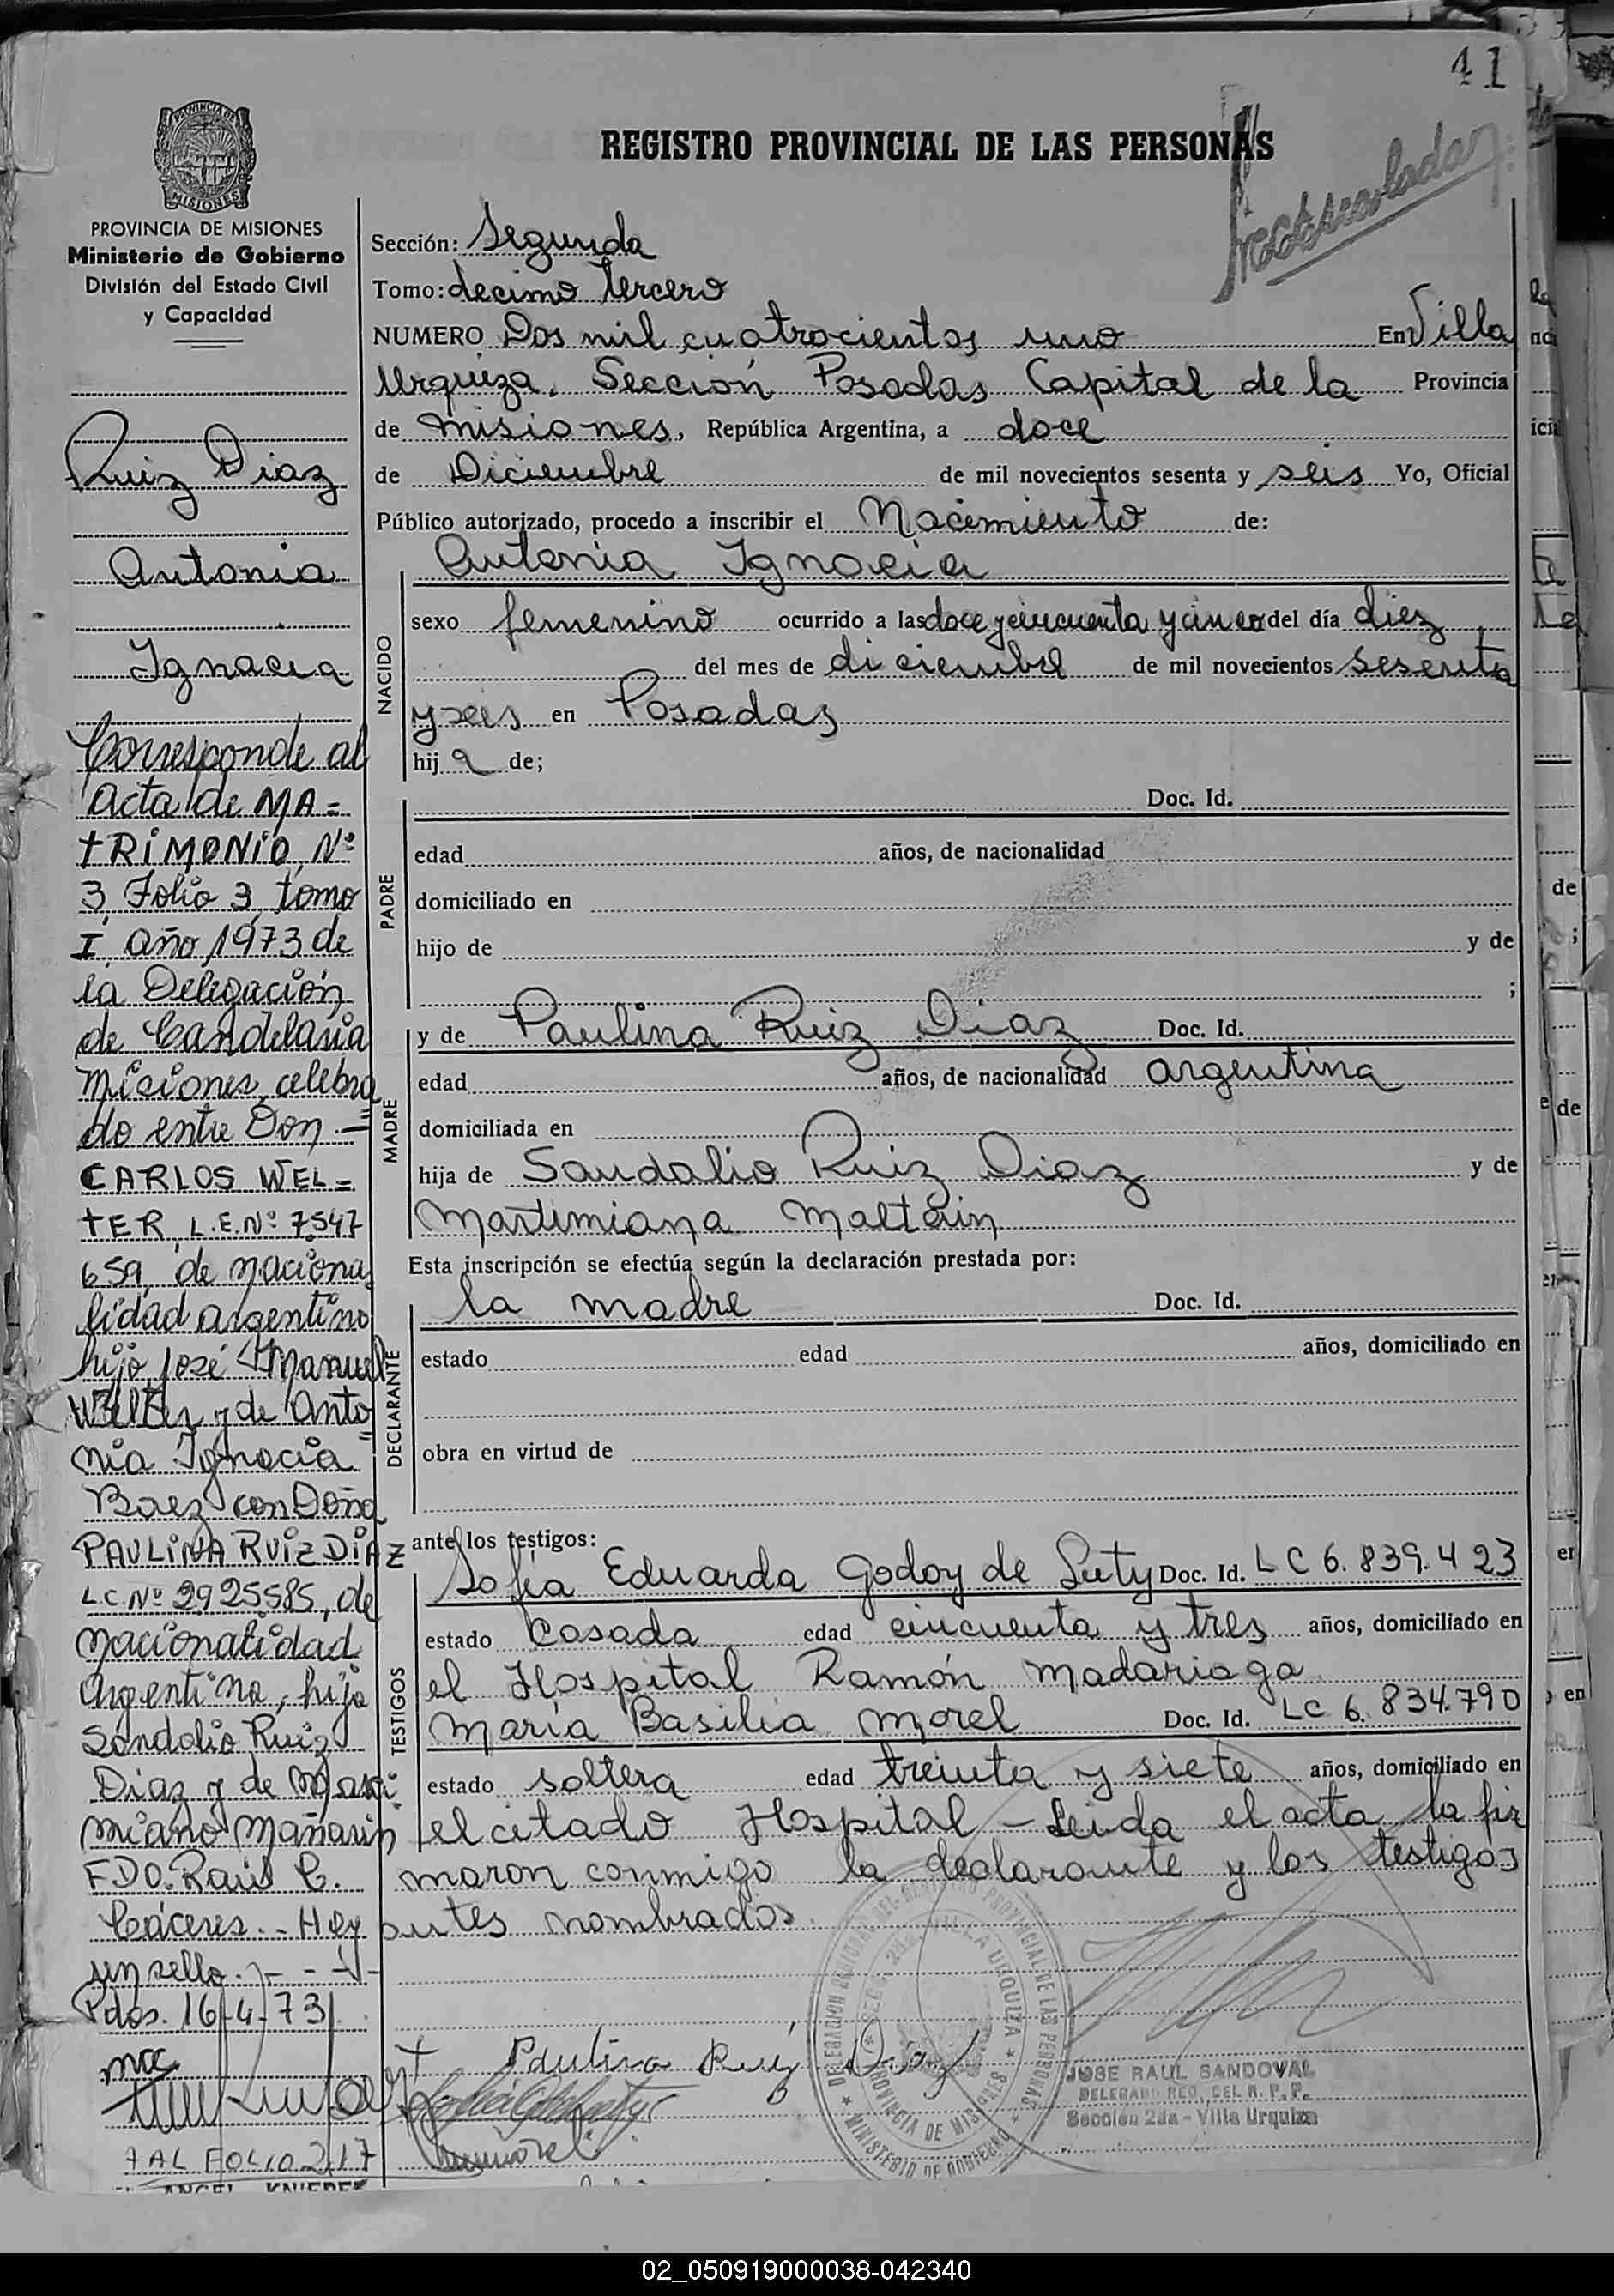 41
REGISTRO PROVINCIAL DE LAS PERSONAS
PROVINCIA DE MISIONES
Ministerio de Gobierno
División del Estado Civil
y Capacidad
Ruiz Diaz
Antonia
Ignacia
Corresponde al
acta de MA=
tRiMONiO, Nº
3 Folio 3 tomo
I año 1973 de
la Delegación
de Candelaria
Misiones, celebra
do entre Don =
CARLOS WEL=
TER, L.E. Nº 7.547
659, de naciona
lidad argentino
hijo José Manuel
Welter y de Anto
nia Ignacia
Baez con Doña
PAULINA RUiZ DiAZ
L.C. Nº 2925585, de
nacionalidad
Argentina, hija
Sandalio Ruiz
Diaz y de Marti
miano Mañarin
FDO. Raul C.
Cáceres.- Hey
un sello.
Pdas. 16-4-73
AL FOLIO 217
Sección: Segunda
Tomo: decimo tercero
NUMERO Dos mil cuatrocientos uno En Villa
Urquiza. Sección Posadas Capital de la Provincia
de Misiones, República Argentina, a doce
de Diciembre de mil novecientos sesenta y seis Yo, Oficial
Público autorizado, procedo a inscribir el Nacimiento de:
Antonia Ignacia
NACIDO
sexo femenino ocurrido a las doce y cincuenta y cinco del día diez
del mes de diciembre de mil novecientos sesenta
y seis en Posadas
hij a de;
PADRE
Doc. Id.
edad años, de nacionalidad
domiciliado en
hijo de y de
;
MADRE
y de Paulina Ruiz Diaz Doc. Id.
edad años, de nacionalidad argentina
domiciliada en
hija de Sandalio Ruiz Diaz y de
Martimiana Maltarin
Esta inscripción se efectúa según la declaración prestada por:
DECLARANTE
la madre Doc. Id.
estado edad años, domiciliado en
obra en virtud de
ante los testigos:
TESTIGOS
Sofia Eduarda Godoy de Luty Doc. Id. LC 6.839.423
estado Casada edad cincuenta y tres años, domiciliado en
el Hospital Ramón Madariaga
María Basilia Morel Doc. Id. LC 6.834.790
estado soltera edad treinta y siete años, domiciliado en
el citado Hospital - Leida el acta la fir
maron conmigo la declarante y los testigos
antes nombrados.
Paulina Ruiz Diaz
JOSE RAUL SANDOVAL
DELEGADO REG. DEL R. P. P.
Sección 2da - Villa Urquiza
02_050919000038-042340